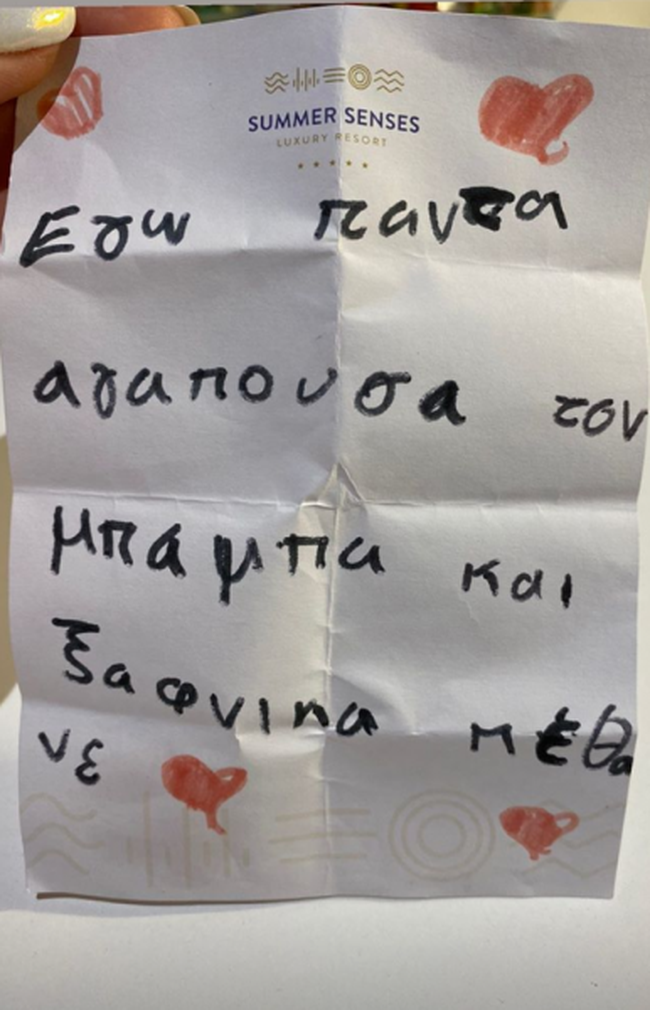 SUMMER SENSES
LUXURY RESORT
Εγω παντα
αγαπουσα τον
μπαμπα και
ξαφνικα πέθα
νε